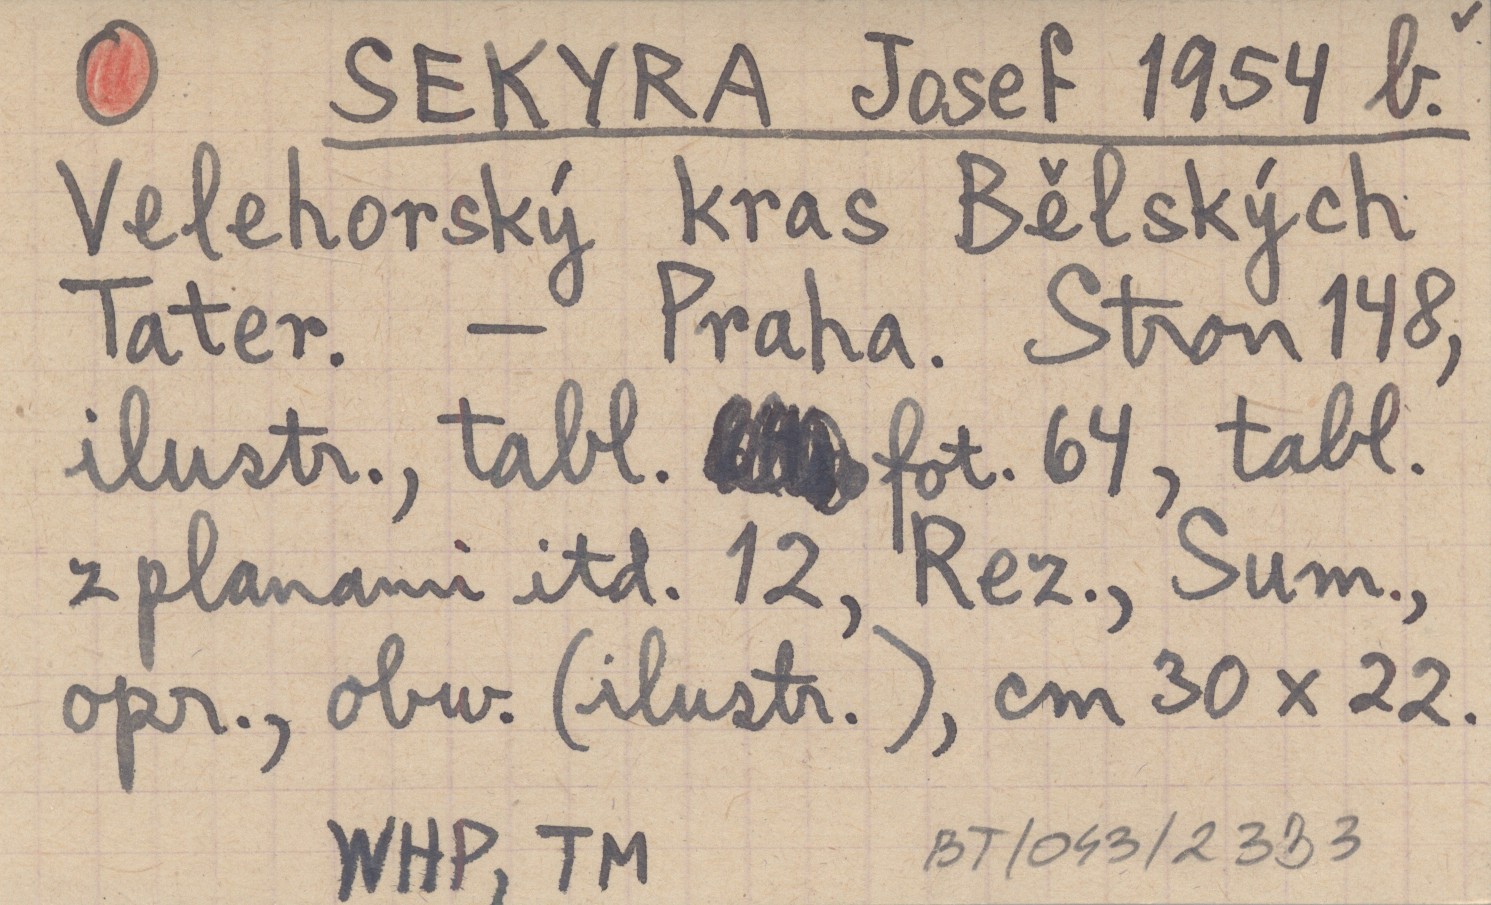 SEKYRA Josef 1954 b.
Velehorský kras Bělských
Tater. — Praha. Stron 148,
ilustr., tabl. fot. 64, tabl.
z planami itd. 12, Rez., Sum.,
opr., obw. (ilustr.), cm 30 x 22.
WHP, TM